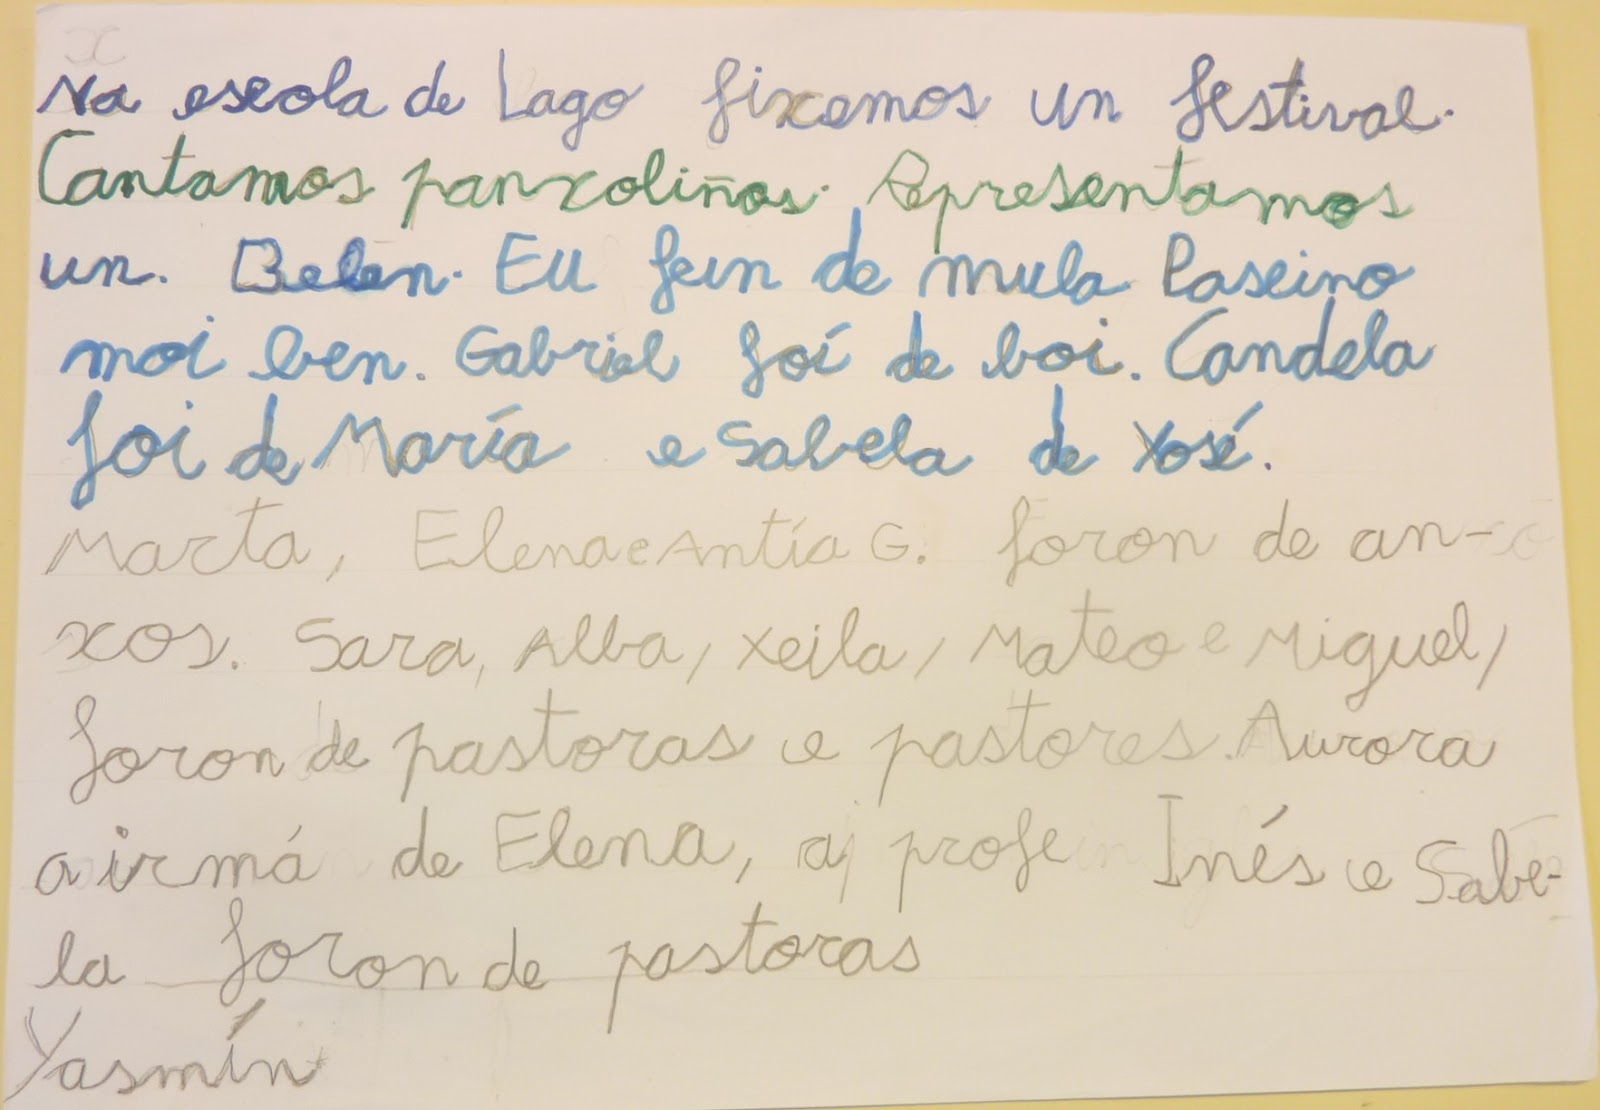 Na escola de Lago fixemos un festival.
Cantamos panxoliños. Representamos
un. Belen. Eu fun de mula Paseino
moi ben. Gabriel foi de boi. Candela
foi de María e Sabela de Xosé.
Marta, Elena e Antía G. foron de an-
xos. Sara, Alba, Xeila, Mateo e Miguel,
foron de pastoras e pastores. Aurora
a irmá de Elena, a profe Inés e Sabe-
la foron de pastoras
Yasmín